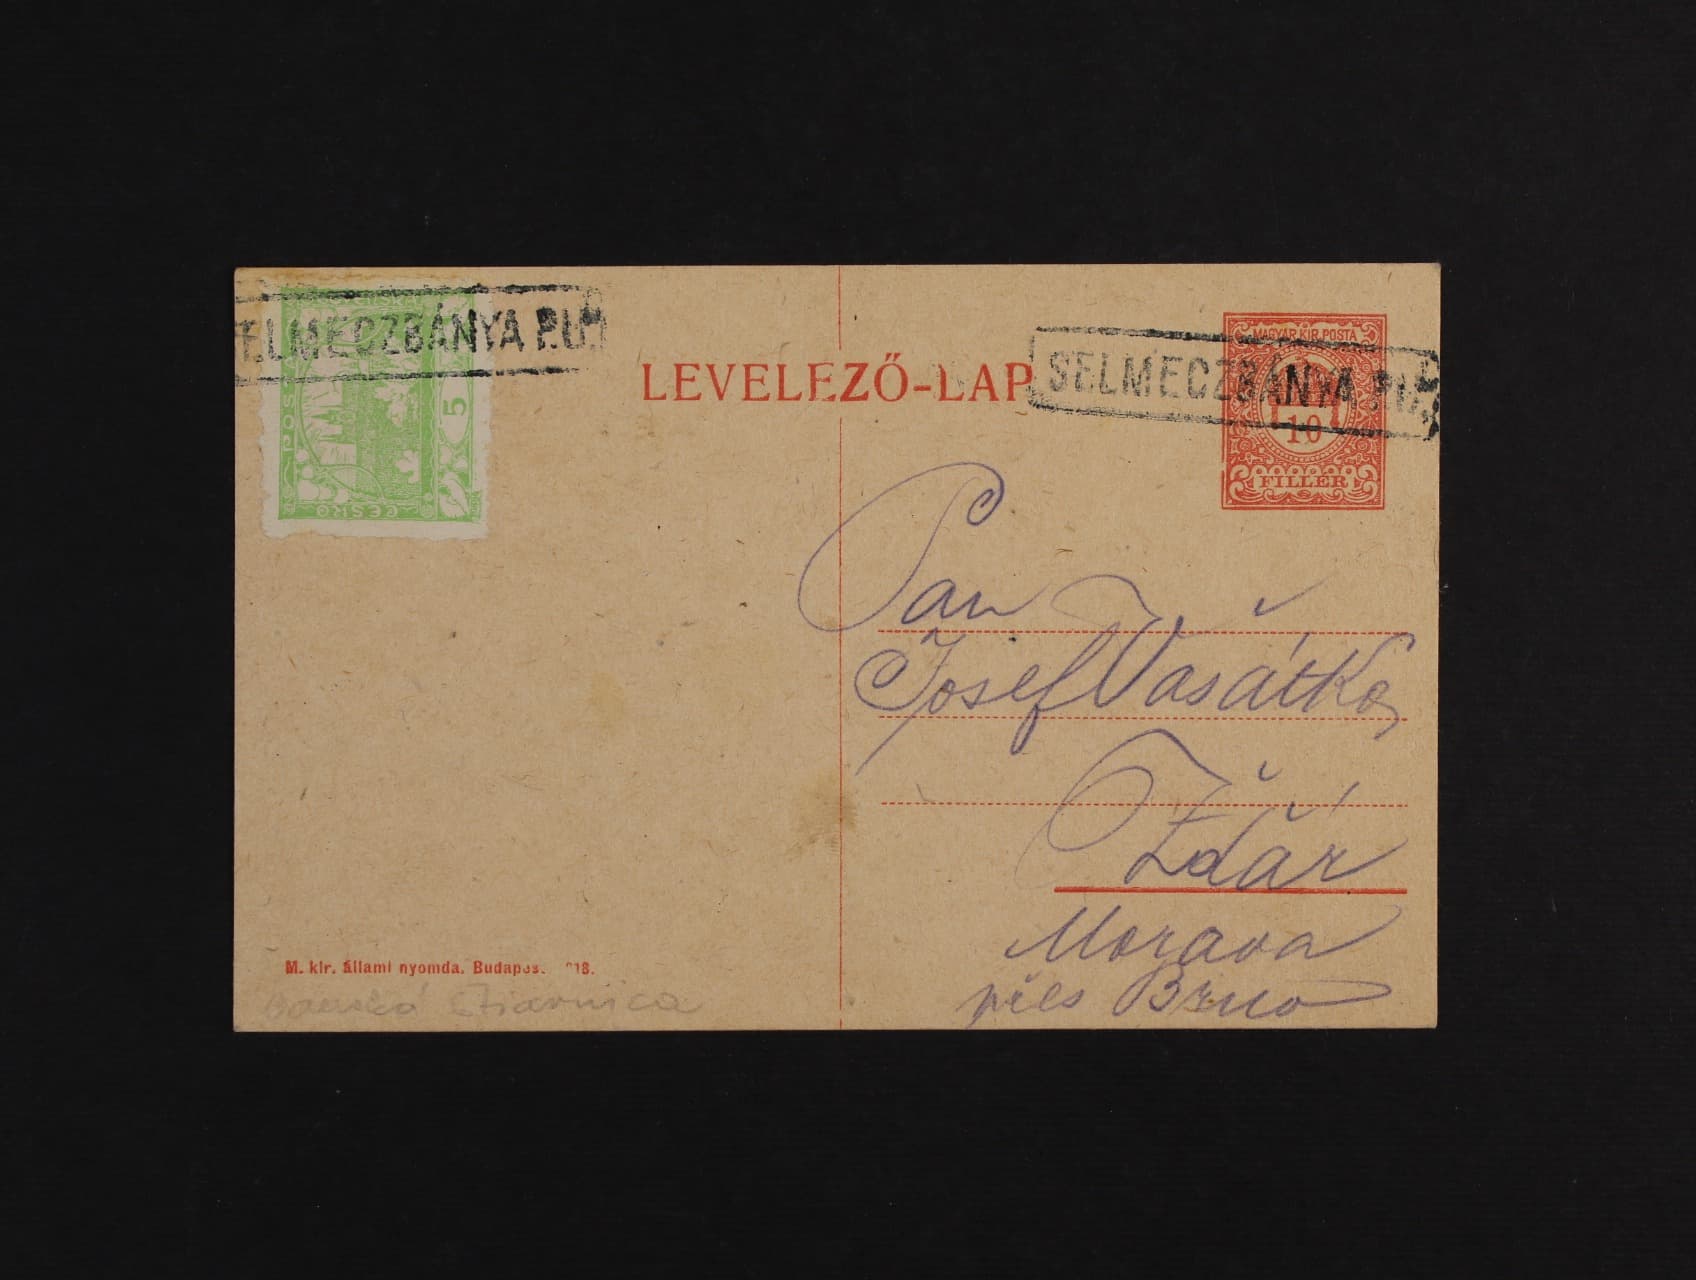 ELMECZBÁNYA P.U.
POŠ
5
ČESKO
LEVELEZŐ-LAP
MAGYAR KIR. POSTA
SELMECZBÁNYA P.U.
10
FILLÉR
Pan
Josef Vašátko
Žďár
Morava
přes Brno
M. kir. állami nyomda. Budapes. 918.
Banská Štiavnica